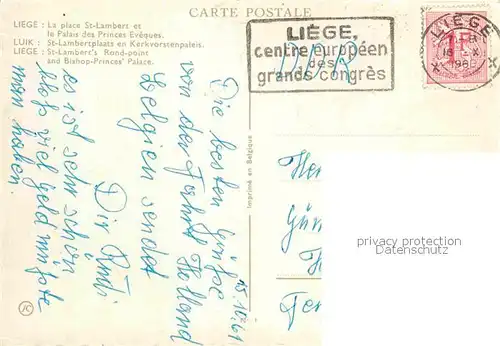 CARTE POSTALE
LIEGE : La place St-Lambert et
le Palais des Princes Evêques.
LUIK : St-Lambertplaats en Kerkvorstenpaleis.
LIEGE : St-Lambert's Rond-point
and Bishop-Princes' Palace.
LIÈGE,
centre européen
des
grands congrès
LIEGE
Imprimé en Belgique
15.10.61
Die besten Grüße
von der Fahrt Holland
Belgien sendet
Dir
es ist sehr schön
bloß viel Geld müßte
man haben.
privacy protection
Datenschutz